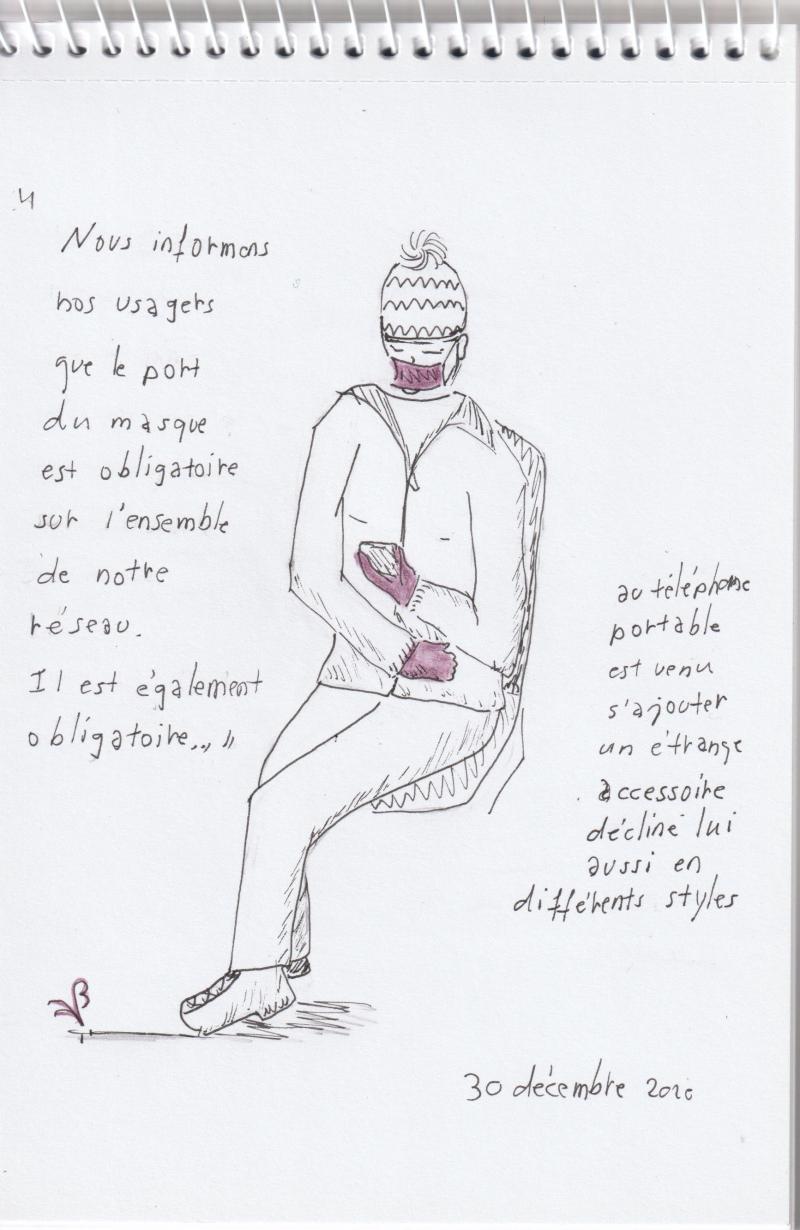 "Nous informons
nos usagers
que le port
du masque
est obligatoire
sur l'ensemble
de notre
réseau.
Il est également
obligatoire..."
au téléphone
portable
est venu
s'ajouter
un étrange
accessoire
décliné lui
aussi en
différents styles
30 décembre 2020